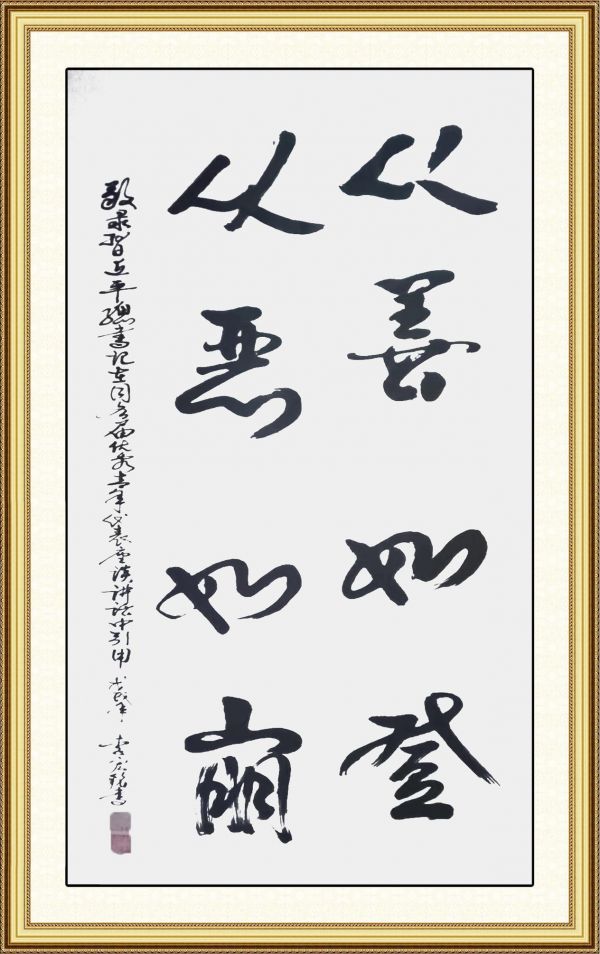 从善如登
从恶如崩
敬录习近平总书记在同各界优秀青年代表座谈讲话中引用 戊戌年 李
书